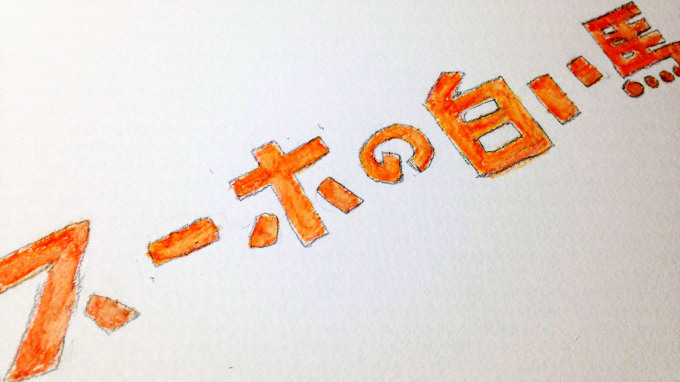 スーホの白い馬